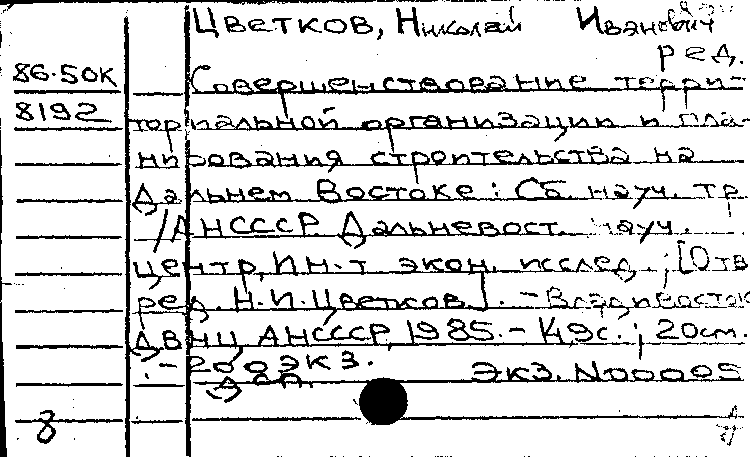 Цветков, Николай Иванович
ред.
86-50К Совершенствование терри-
8192 ториальной организации и пла-
нирования строительства на
Дальнем Востоке: Сб. науч. тр.
/АНСССР. Дальневост. науч.
центр, Ин-т экон. исслед.; [Отв.
ред. Н.И.Цветков]. - Владивосток
ДВНЦ АНСССР, 1985. - 149с.; 20см.
. - 200экз.
Экз. N00005
8